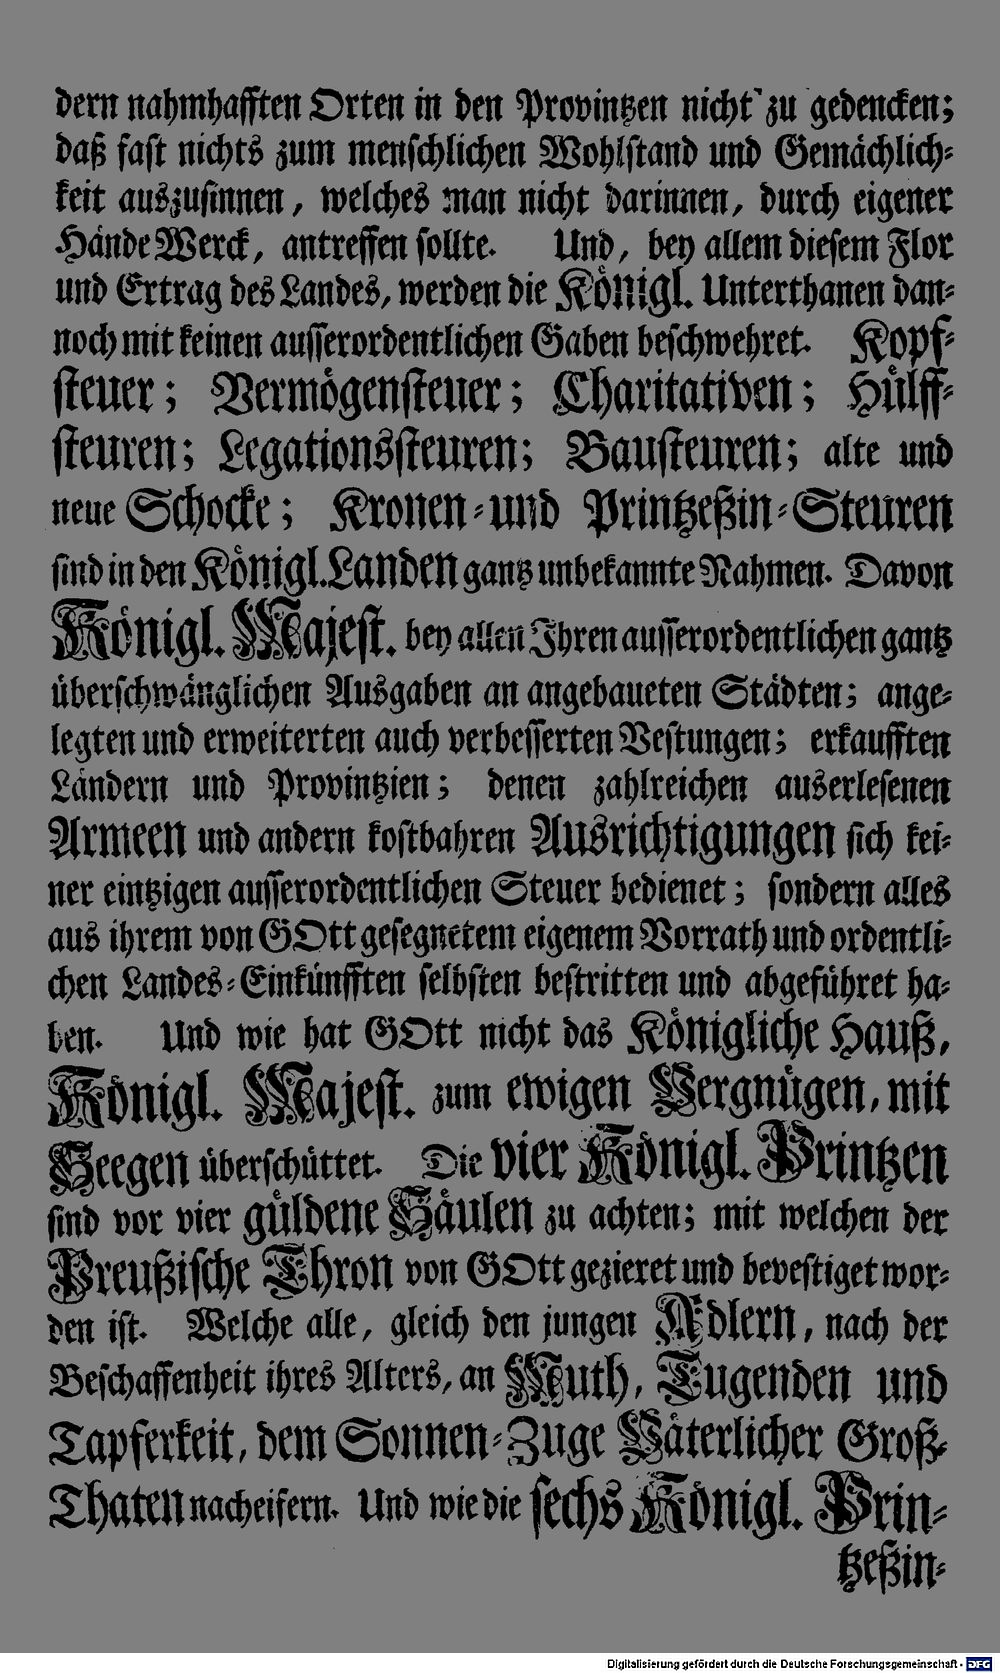 dern nahmhafften Orten in den Provintzen nicht zu gedencken;
daß fast nichts zum menschlichen Wohlstand und Gemächlich-
keit auszusinnen, welches man nicht darinnen, durch eigener
Hände Werck, antreffen sollte. Und, bey allem diesem Flor
und Ertrag des Landes, werden die Königl. Unterthanen dan-
noch mit keinen ausserordentlichen Gaben beschwehret. Kopf-
steuer; Vermögensteuer; Charitativen; Hülff-
steuren; Legationssteuren; Bausteuren; alte und
neue Schocke; Kronen-und Printzeßin-Steuren
sind in den Königl. Landen gantz unbekannte Nahmen. Davon
Königl. Majest. bey allen Ihren ausserordentlichen gantz
überschwänglichen Ausgaben an angebaueten Städten; ange-
legten und erweiterten auch verbesserten Vestungen; erkaufften
Ländern und Provintzien; denen zahlreichen auserlesenen
Armeen und andern kostbahren Ausrichtigungen sich kei-
ner eintzigen ausserordentlichen Steuer bedienet; sondern alles
aus ihrem von GOtt gesegnetem eigenem Vorrath und ordentli-
chen Landes-Einkünfften selbsten bestritten und abgeführet ha-
ben. Und wie hat GOtt nicht das Königliche Hauß,
Königl. Majest. zum ewigen Vergnügen, mit
Seegen überschüttet. Die vier Königl. Printzen
sind vor vier güldene Säulen zu achten; mit welchen der
Preußische Thron von GOtt gezieret und bevestiget wor-
den ist. Welche alle, gleich den jungen Adlern, nach der
Beschaffenheit ihres Alters, an Muth, Tugenden und
Tapferkeit, dem Sonnen-Zuge Väterlicher Groß-
Thaten nacheifern. Und wie die sechs Königl. Prin-
tzeßin-
Digitalisierung gefördert durch die Deutsche Forschungsgemeinschaft - DFG